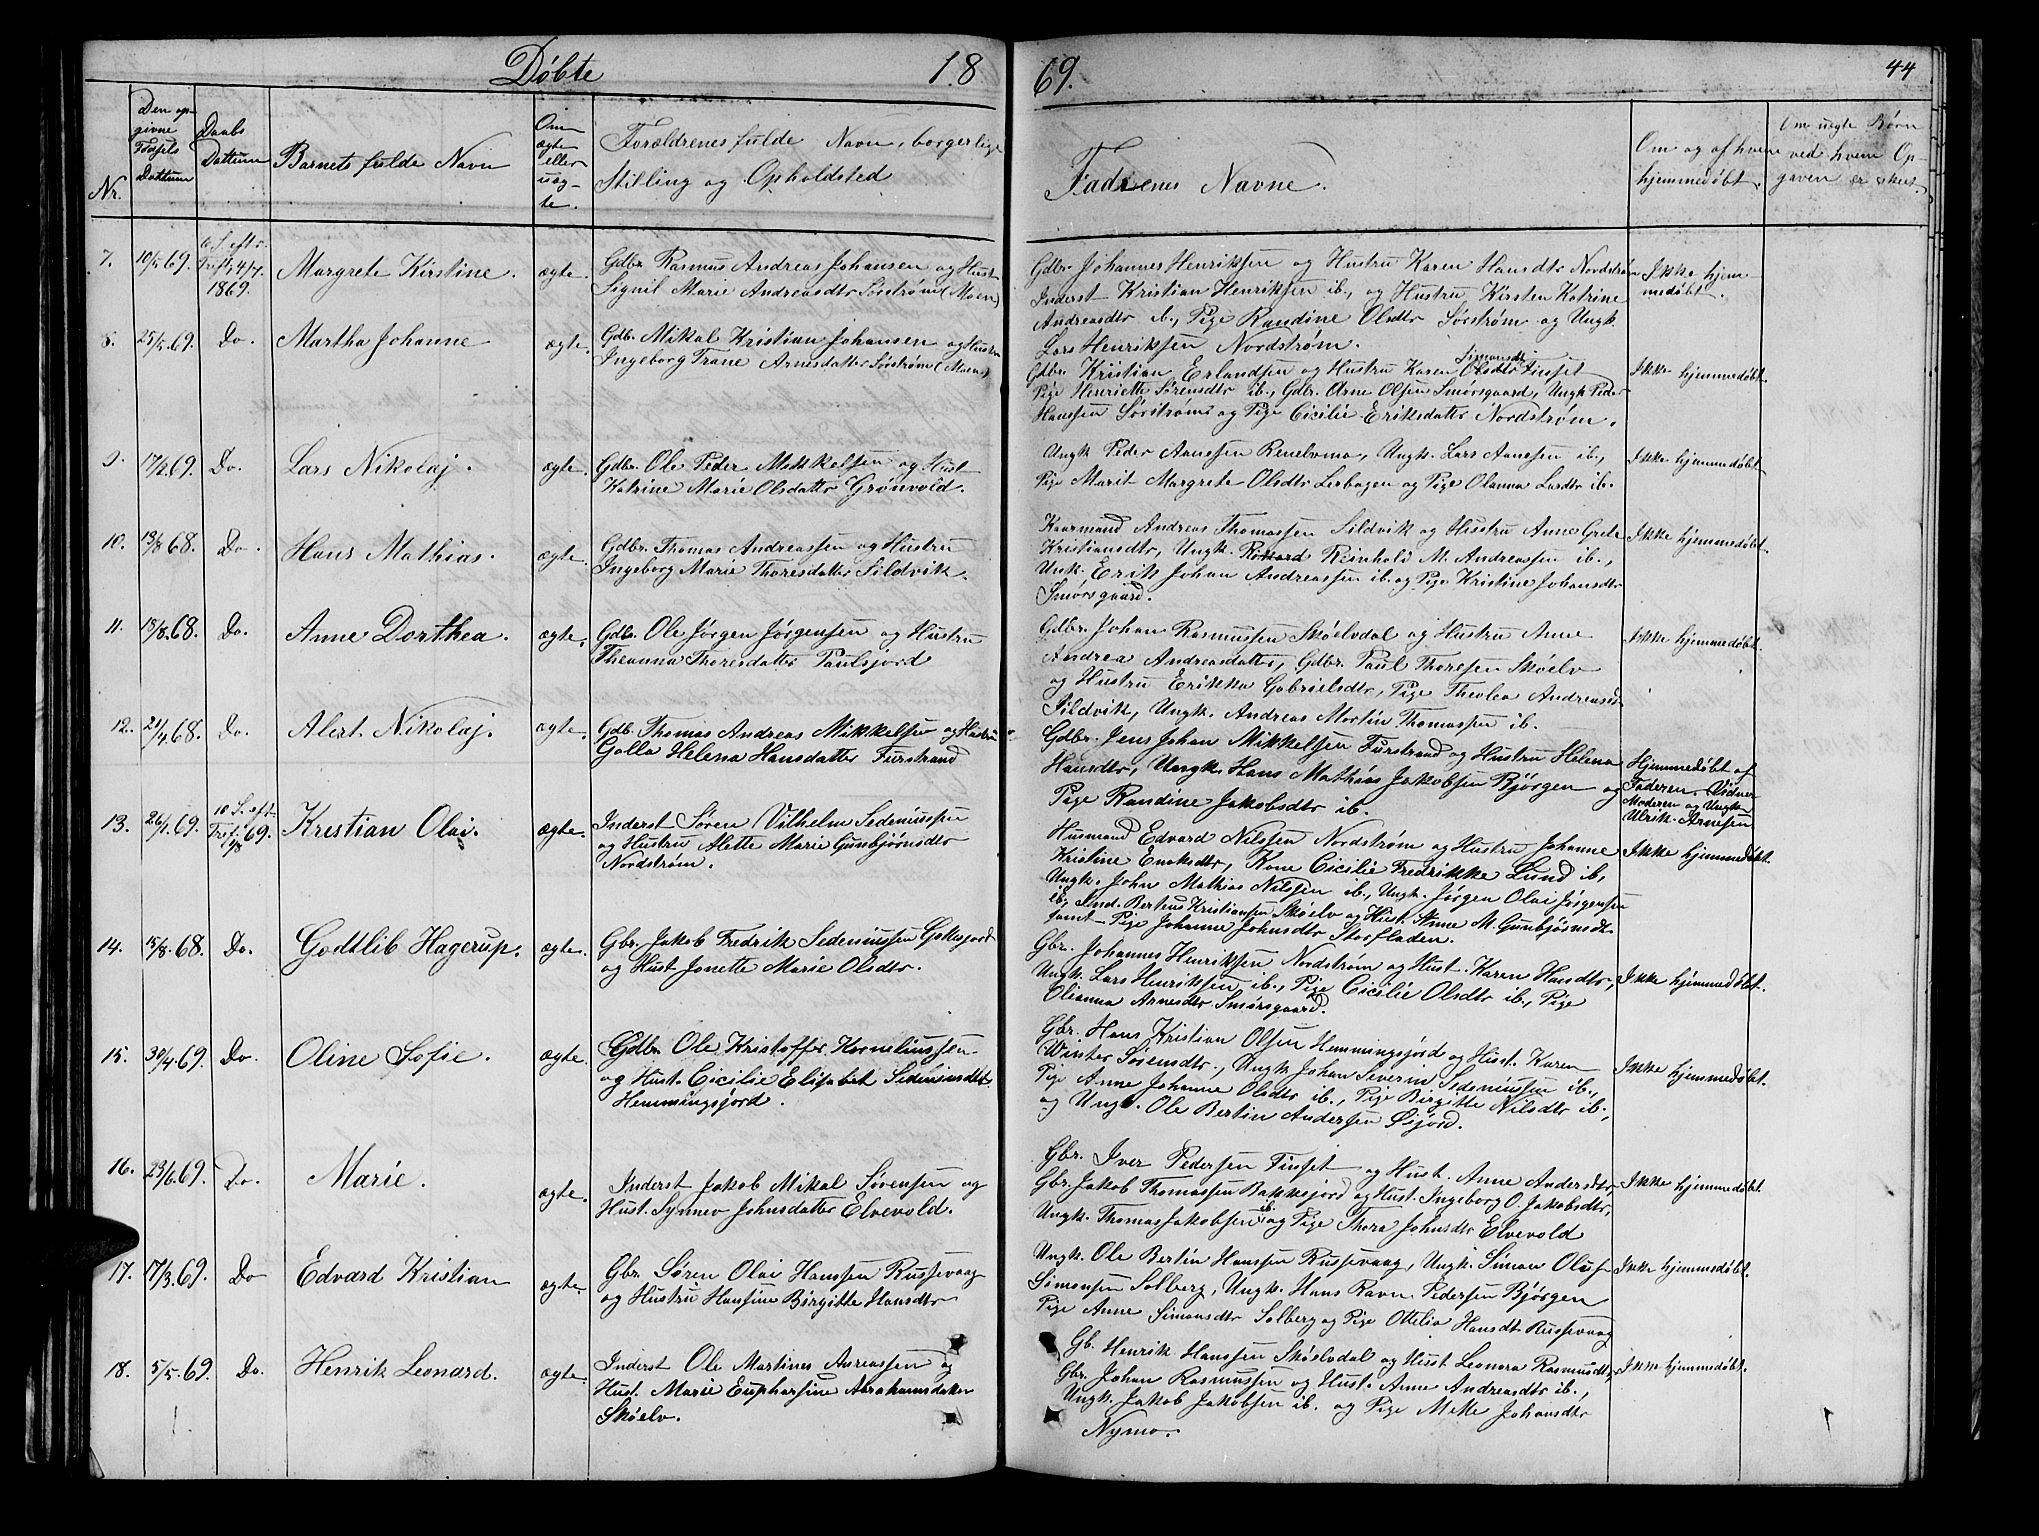 Døbte 1869. 44
Nr.
Den op-
givne
Føsels
Dattum
Daabs
Dattum
Barnets fulde Navn
Om
ægte
eller
uæg-
te.
Forældrenes fulde Navn, borgerlige
Stilling og Opholdsted
Faddrenes Navne.
Om og af hvem
hjemmedøbt.
Om uegte Børn
ved hvem Op-
gaven er skeet
7. 69. 6 S. eftr.
Tref. 4/7.
1869.
Margrete Kirstine. ægte.
Gdbr. Rasmus Andreas Johansen og Hust
Signil Marie Andreasdtr Sørstrøm (Moen)
Gdbr. Johannes Henriksen og Hustru Karen Hansdtr Nordstrøm
Inderst Kristian Henriksen ib., og Hustru Kirsten Katrine
Andreasdtr ib., Pige Randine Olsdtr Sørstrøm og Ungk.
Lars Henriksen Nordstrøm.
Ikke hjem-
medøbt.
8. 69. Do. Martha Johanne ægte.
Gdbr. Mikal Kristian Johansen og Hustru
Ingeborg Trane Arnesdatter Sørstrøm (Moen)
Gdbr. Kristian Erlandsen og Hustru Karen Simonsdtr Finset
Pige Henriette Sørensdtr ib., Gdbr. Arne Olsen Smørsgaard, Ungk Peder
Hansen Sørstrøm og Pige Cicilie Eriksdatter Nordstrøm.
Ikke hjemmedøbt
9. 17/2 69. Do. Lars Nikolaj. ægte.
Gdbr. Ole Peder Mikkelsen og Hust
Katrine Marie Olsdatter Grønvold.
Ungk Peder Aanesen Renelvmo, Ungk. Lars Aanesen ib.,
Pige Marit Margrete Olsdtr Lerbogen og Pige Olanna Larsdtr ib.
Ikke hjemmedøbt
10. 68. Do. Hans Mathias. ægte.
Gdbr. Thomas Andreassen og Hustru
Ingeborg Marie Thoresdatter Sildvik.
Kaarmand Andreas Thomassen Sildvik og Hustru Anne Grete
Kristiansdtr, Ungk. Reinhold M. Andreasen ib.,
Ungk. Erik Johan Andreassen ib. og Pige Kristine Johansdtr
Smørsgaard.
Ikke hjemmedøbt.
11. 18/8. 68. Do. Anne Dorthea. ægte.
Gdbr. Ole Jørgen Jørgensen og Hustru
Theanna Thoresdatter Paulsjord
Gdbr. Johan Rasmussen Skøelvdal og Hustru Anne
Andrea Andreasdatter, Gdbr. Paul Thoresen Skøelv
og Hustru Erikka Gabrielsdtr, Pige Theolea Andreasd
Sildvik, Ungk. Andreas Mortin Thomassen ib.
Ikke hjemmedøbt.
12. 21/4 68. Do. Alert Nikolaj. ægte.
Gdb. Thomas Andreas Mikkelsen og Hustru
Golla Helena Hansdatter Furstrand
Gdbr. Jens Johan Mikkelsen Furstrand og Hustru Helena
Hansdtr, Ungk. Hans Mathias Jakobsen Bjørgen og
Pige Randine Jakobsdtr ib.
Hjemmedøbt af
Faderen. Vidner
Moderen og Ungk.
Ulrik Arnesen
13. 26/1. 69. 10 S. eft.
Tref. 69.
1/8
Kristian Olai. ægte.
Inderst Søren Vilhelm Sedeniussen
og Hustru Alette Marie Gunbjørnsdtr
Nordstrøm.
Husmand Edvard Nilssen Nordstrøm og Hustru Johanne
Kristine Enoksdtr, Kone Cicilie Fredrikke Lund ib,
Ungk. John Mathias Nilssen ib., Ungk. Jørgen Olai Jørgensen
ib, Ind. Berteus Kristiansen Skøelv og Hust. Anne M. Gunbjørnsdt.
samt Pige Johanne Johnsdtr Storfladen.
Ikke hjemmedøbt.
14. 15/8. 68. Do. Godtlib Hagerup. ægte.
Gbr. Jakob Fredrik Sedeniussen Gakesjord
og Hust Jonette Marie Olsdtr.
Gbr. Johannes Henriksen Nordstrøm og Hust. Karen Hansdtr,
Ungk. Lars Henriksen ib., Pige Cicilie Olsdtr ib., Pige
Olianna Arnesdtr Smørsgaard.
Ikke hjemmedøbt.
15. 30/4. 69. Do. Oline Sofie. ægte.
Gdbr. Ole Kristoffer Korneliussen
og Hust. Cicilie Elisabet Sedeniusdtt,
Hemmingsjord.
Gbr. Hans Kristian Olsen Hemmingsjord og Hust. Karen
Winter Sørensdtr., Ungk. Johan Severin Sedeniussen ib.,
Pige Anne Johanne Olsdtr ib., Pige Birgitte Nilsdtr ib.,
og Ungk. Ole Bertin Andersen Øijord.
Ikke hjemmedøbt.
16. 23/6. 69. Do. Marie. ægte.
Inderst Jakob Mikal Sørensen og
Hust. Synnev Johnsdatter Elvevold.
Gbr. Iver Pedersen Finset og Hust. Anne Andersdtr,
Gbr. Jakob Thomassen Bakksjord og Hust. Ingeborg O. Jakobsdtr,
Ungk. Thomas Jakobsen ib. og Pige Thora Johnsdtr Elvevold
Ikke hjemmedøbt.
17. 17/3. 69. Do Edvard Kristian ægte.
Gbr. Søren Olai Hanssen Russevaag
og Hustru Hansine Birgitte Hansdtr
Ungk. Ole Bertin Hanssen Russevaag, Ungk. Simon Oluf
Simonsen Solberg, Ungk. Hans Ravn Pedersen Bjørgen
Pige Anne Simonsdtr Solberg og Pige Ottelia Hansdt. Russevaag
Ikke hjemmedøbt.
18. 5/5. 69. Do. Henrik Leonard. ægte.
Inderst Ole Martines Anreassen og
Hust. Marie Eupharsine Abrahamsdatter
Skøelv.
Gb. Henrik Hanssen Skøelvdal og Hust Leonora Rasmusdtr,
Gbr. Johan Rasmussen og Hust. Anne Andreasdtr ib.,
Ungk. Jakob Jakobsen ib. og Pige Mette Johansdtr
Nymo.
Ikke hjemmedøbt.